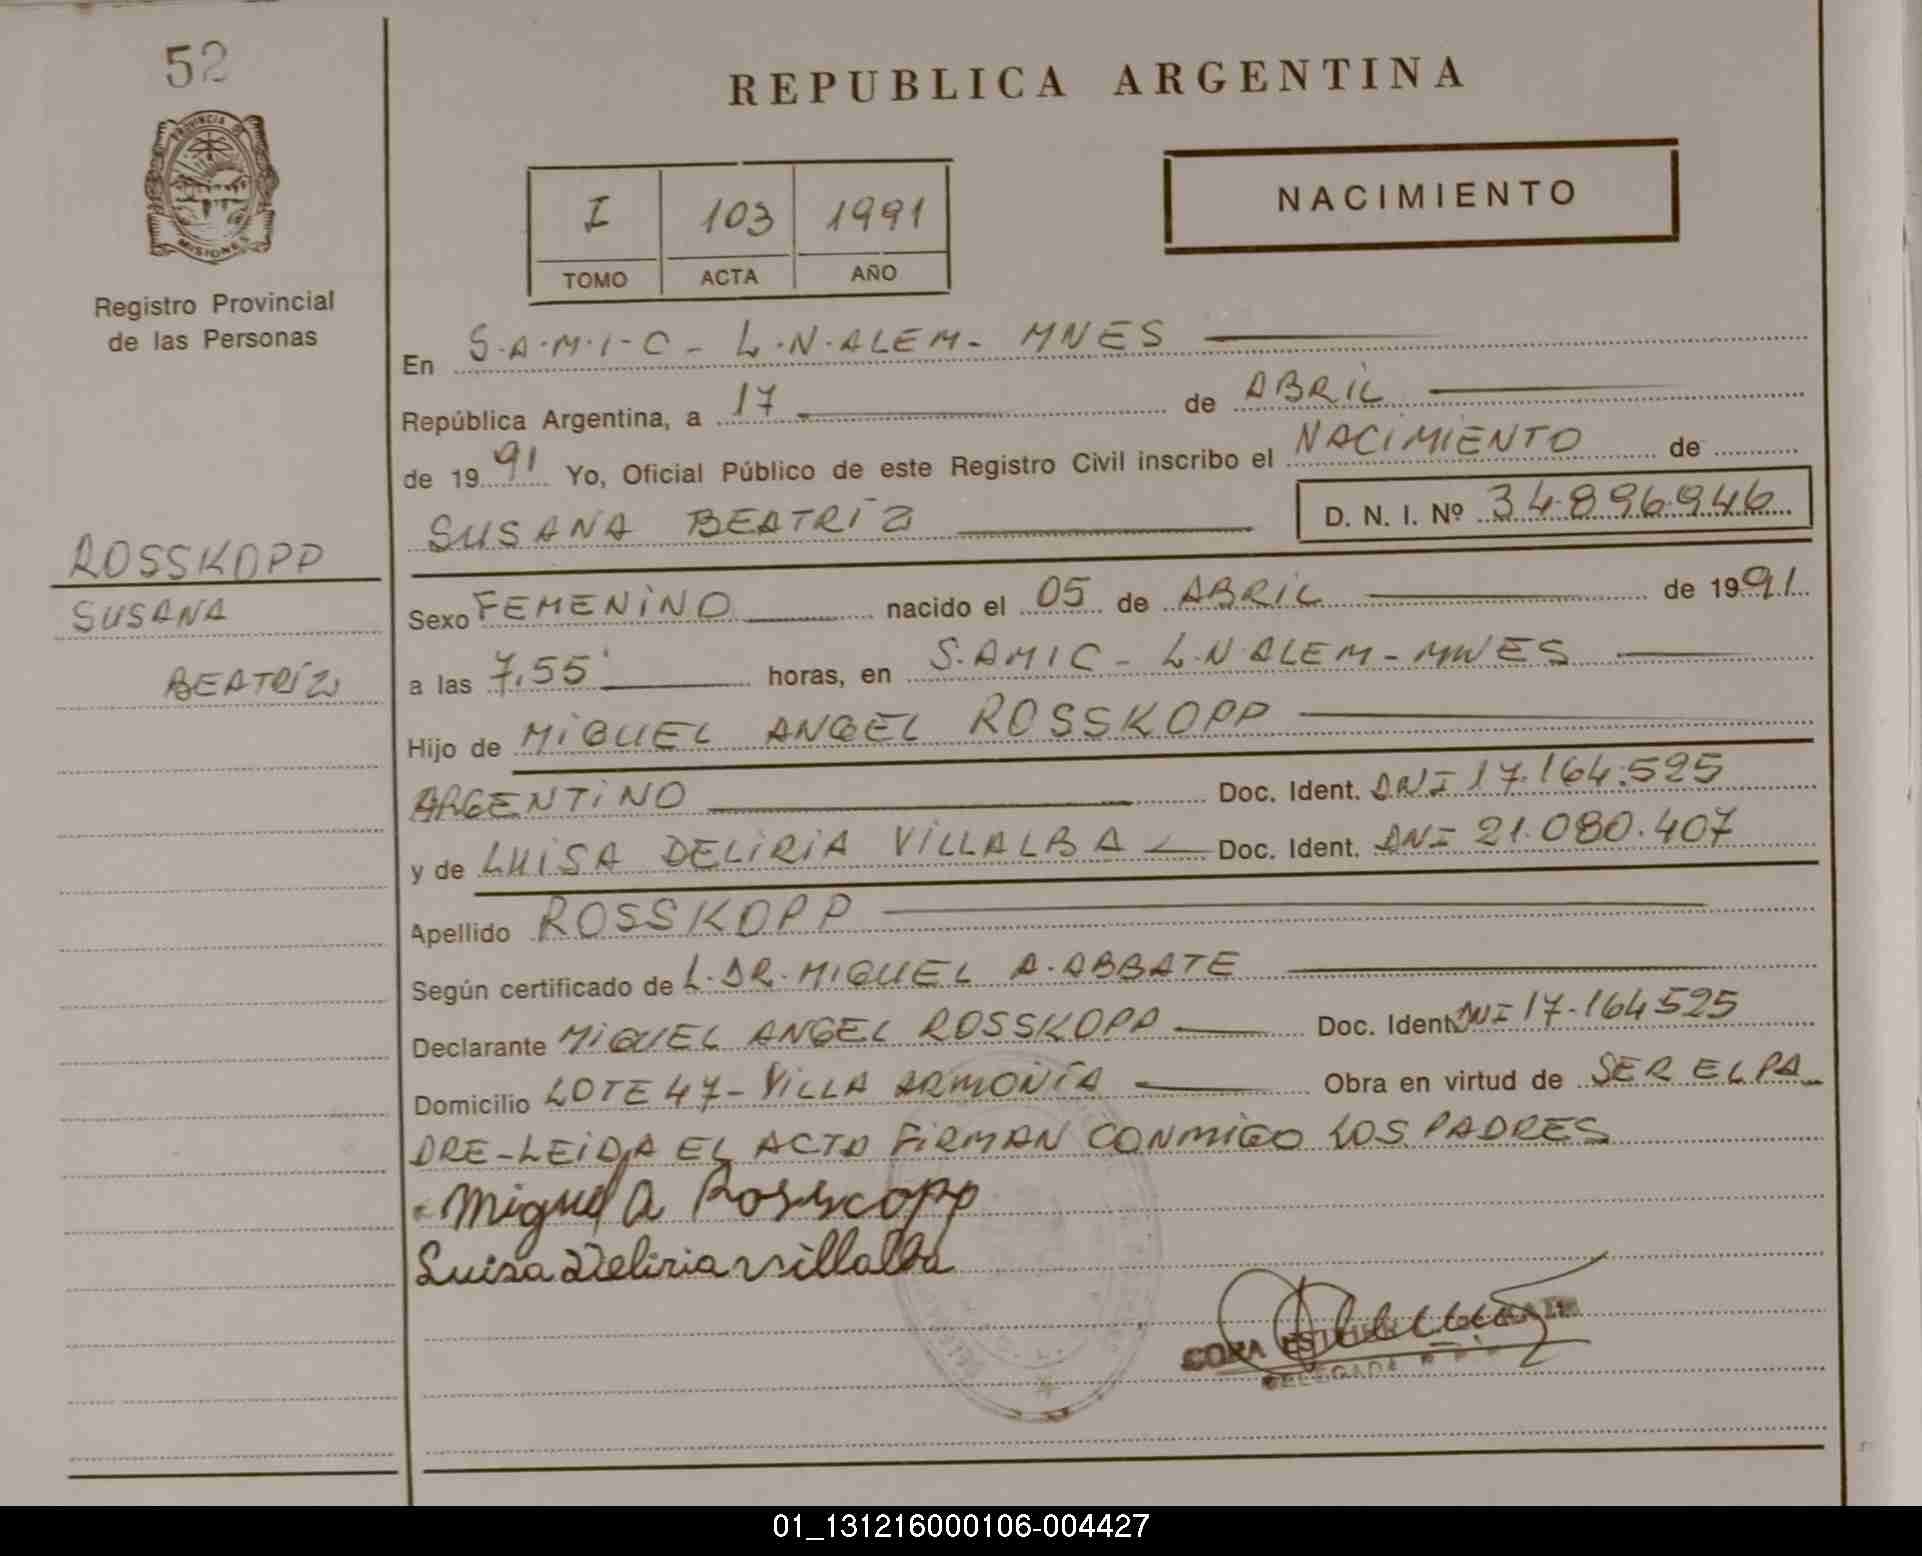 52
PROVINCIA DE
MISIONES
Registro Provincial
de las Personas
ROSSKOPP
SUSANA
BEATRÍZ
REPUBLICA ARGENTINA
I 103 1991
TOMO ACTA AÑO
NACIMIENTO
En S.A.M.I.C - L.N.ALEM - MNES
República Argentina, a 17 de ABRIL
de 19 91 Yo, Oficial Público de este Registro Civil inscribo el NACIMIENTO de
SUSANA BEATRÍZ D. N. I. Nº 34.896.946
Sexo FEMENINO nacido el 05 de ABRIL de 19 91
a las 7,55' horas, en S.AMIC - L.N.ALEM - MNES
Hijo de MIGUEL ANGEL ROSSKOPP
ARGENTINO Doc. Ident. DNI 17.164.525
y de LUISA DELIRIA VILLALBA Doc. Ident. DNI 21.080.407
Apellido ROSSKOPP
Según certificado de L.DR.MIGUEL A.ABBATE
Declarante MIGUEL ANGEL ROSSKOPP Doc. Ident. DNI 17.164525
Domicilio LOTE 47 - VILLA ARMONÍA Obra en virtud de SER EL PA
DRE - LEIDA EL ACTA FIRMAN CONMIGO LOS PADRES
Miguel A Rosskopp
Luisa Deliria villalba
DELEGADA
01_131216000106-004427